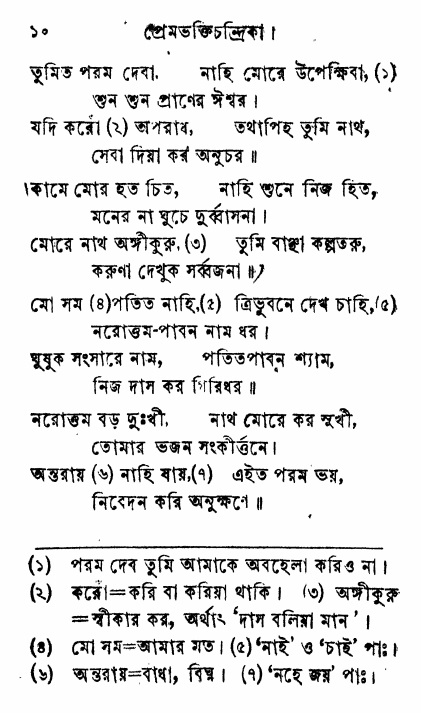 ১০ প্রেমভক্তিচন্দ্রিকা।
তুমিত পরম দেবা, নাহি মোরে উপেক্ষিবা, (১)
শুন শুন প্রাণের ঈশ্বর।
যদি করোঁ (২) অপরাধ, তথাপিহ তুমি নাথ,
সেবা দিয়া কর অনুচর॥
কামে মোর হত চিত, নাহি শুনে নিজ হিত,
মনের না ঘুচে দুর্ব্বাসনা।
মোরে নাথ অঙ্গীকুরু, (৩) তুমি বাঞ্ছা কল্পতরু,
করুণা দেখুক সর্ব্বজনা॥
মো সম (৪) পতিত নাহি, (৫) ত্রিভুবনে দেখ চাহি, (৫)
নরোত্তম-পাবন নাম ধর।
ঘুষুক সংসারে নাম, পতিতপাবন শ্যাম,
নিজ দাস কর গিরিধর॥
নরোত্তম বড় দুঃখী, নাথ মোরে কর সুখী,
তোমার ভজন সংকীর্ত্তনে।
অন্তরায় (৬) নাহি যায়, (৭) এইত পরম ভয়,
নিবেদন করি অনুক্ষণে॥
(১) পরম দেব তুমি আমাকে অবহেলা করিও না।
(২) করোঁ=করি বা করিয়া থাকি। (৩) অঙ্গীকুরু
=স্বীকার কর, অর্থাৎ ‘দাস বলিয়া মান’।
(৪) মো সম=আমার মত। (৫) ‘নাই’ ও ‘চাই’ পাঃ।
(৬) অন্তরায়=বাধা, বিঘ্ন। (৭) ‘নহে জয়’ পাঃ।